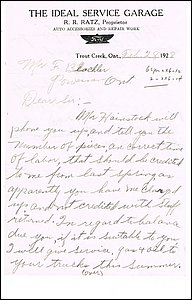 THE IDEAL SERVICE GARAGE
R. R. RATZ, Proprietor
AUTO ACCESSORIES AND REPAIR WORK
Trout Creek, Ont., Feb 28 1928
Mr F.
Ont
Dear Sir:-
Mr Hainstock will
phone you up and tell you the
number of pieces, an correct time
of labor, that should be credited
to me from last spring as
apparently you have me charged
up and not credited with stuff
returned. In regard to balance
due you, if it is suitable to you
I will give service, gas & oil to
your trucks this summer.
(over)